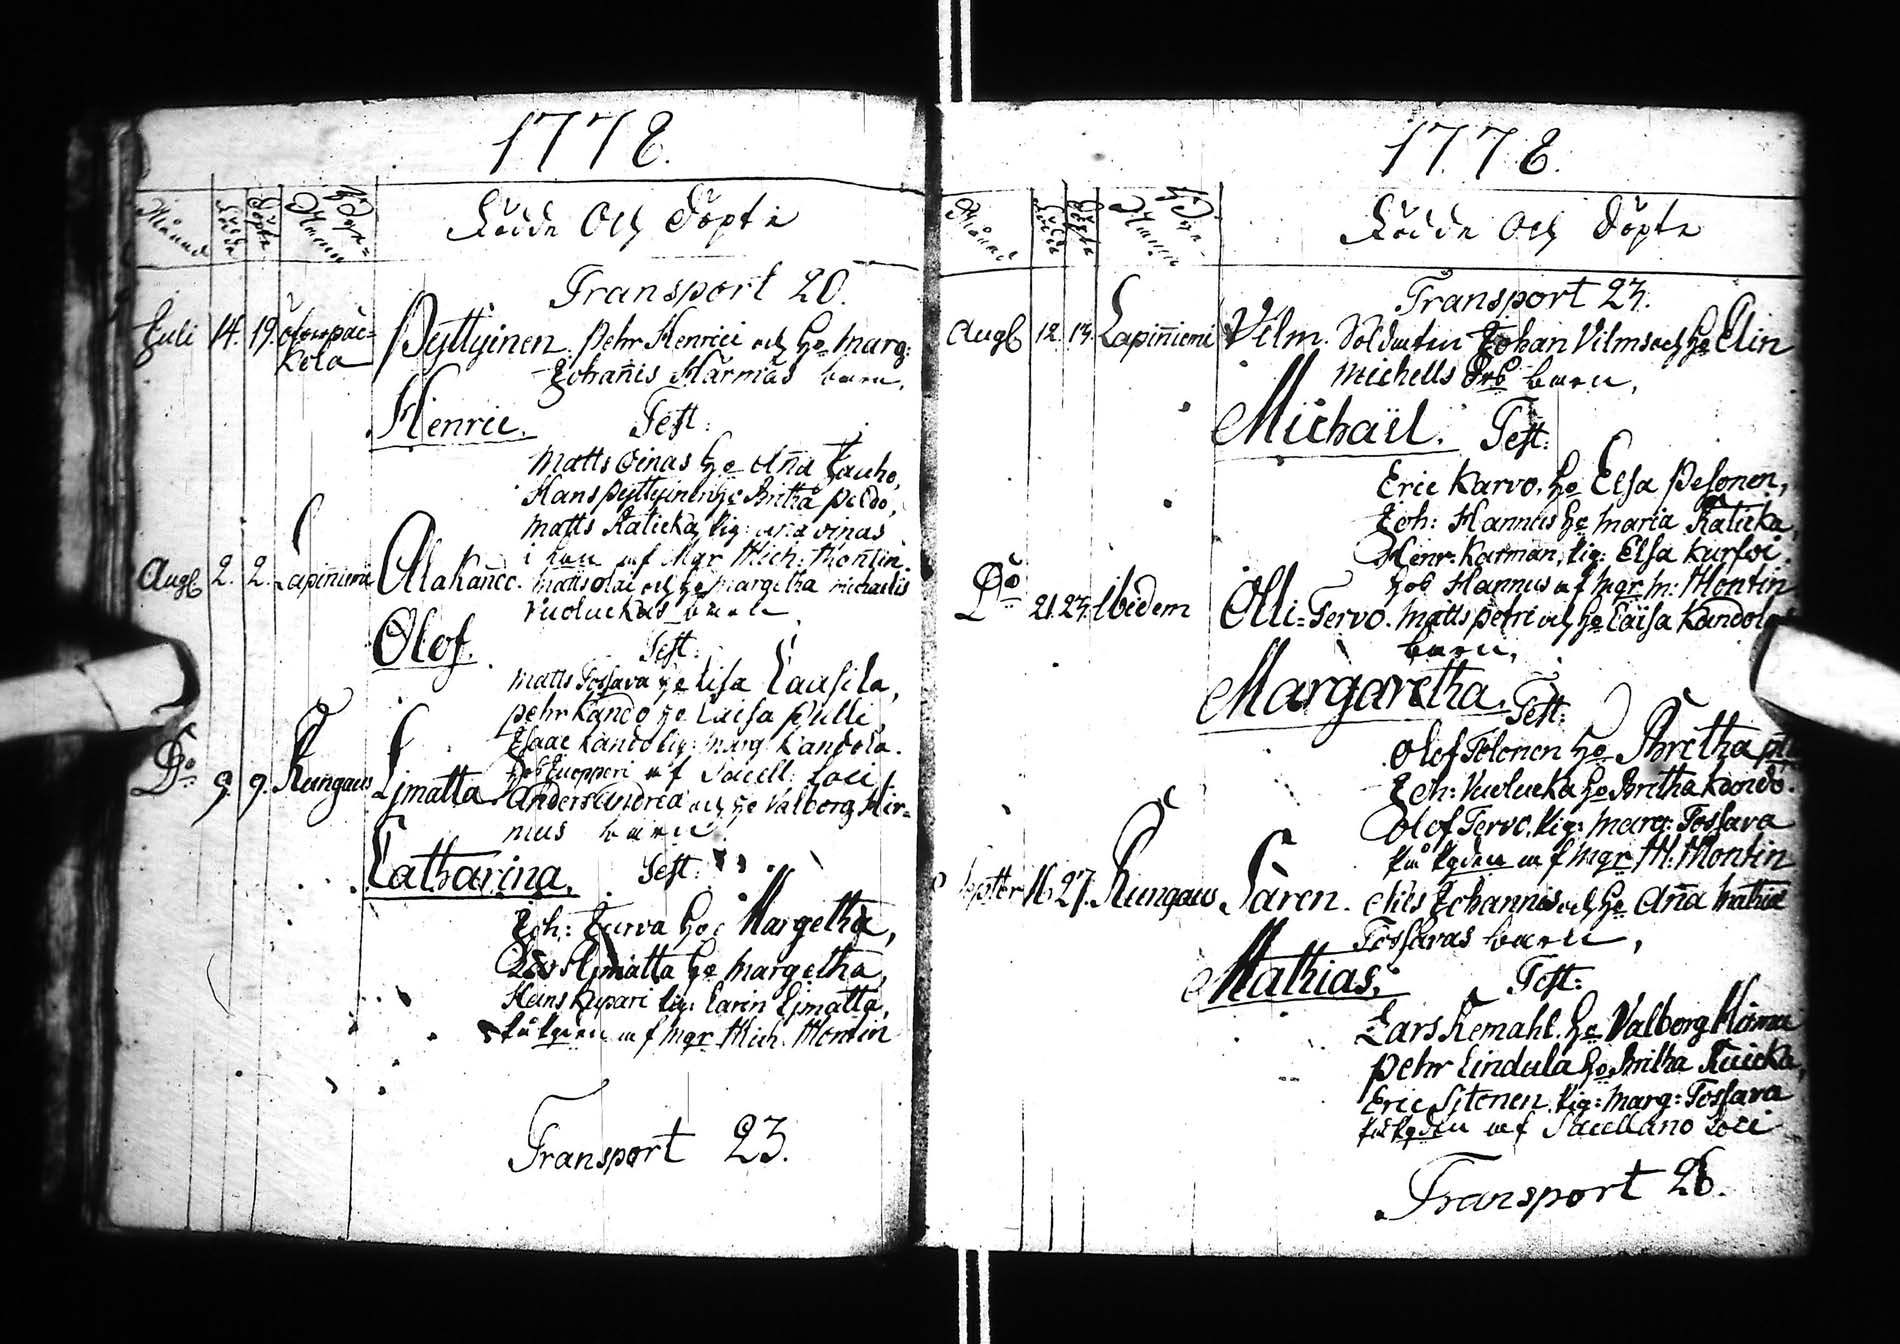 1778.
Månad
Födde
Döpte
Byns Namn
Födde Och Döpte
Transport 20.
Juli 14. 19.
kola
Pyttyinen. Pehr Henrici och h:o Marg:
Johañis Härmäs barn,
Henric. Test:
Matts Oinas h:o Aña Jauho,
Hans Pyttyinen h:o Britha Peldo,
Matts Raticka, pig: Aña Oinas
af Mgr Mich: Montin.
Aug: 2. 2. Lapiñiemi
Matts Olai och h:o Margetha Michaelis
Vuoluckas barn
Olof. Test:
Matts Tossava h:o Lisa Lausila,
Pehr Kando h:o Caisa Pulli,
Isaac Kando pig: Marg: Kandola.
af Sacell: Loci
D:o 9. 9. Kungaus
Ljmatta. Anders Andreæ och h:o Valborg Hir-
nius barn
Catharina. Test:
Joh: Turva h:o Margetha,
Ljmatta h:o Margetha,
Heins Kupari pig: Carin Ljmatta,
på Pgden af Mgr Mich. Montin
Transport 23.
1778.
Månad
Födde
Döpte
Byns Namn
Födde Och Döpte
Transport 23.
Aug: 12. 13. Lapiñiemi
Vilm. Soldaten Johan Vilms och h:o Elin
Michells Drs barn,
Michaël. Test:
Eric Karvo, h:o Elsa Pesonen,
Joh: Hannus h:o Maria Raticka,
Henr. Karman, pig: Elsa Kursoi,
hos Hannus af Mgr M: Montin
D:o 21. 23. Ibidem
Olli-Tervo. Matts Petri och h:o Caisa Kandola
barn,
Margaretha. Test:
Olof Tolonen h:o Britha
Joh: Vuolucka h:o Britha Kando.
Olof Tervo, Pig: Marg: Tossava
på Pgden af Mgr M: Montin
Septbr 16 27. Kungaus
Sáren. Nils Johannis och h:o Aña Mathiæ
Tossavas barn,
Mathias. Test:
Lars Kemahl. h:o Valborg
Pehr Lindula h:o Britha Kuicka,
Eric Sitonen, Pig: Marg: Tossava
på Pgden af Sacellano Loci
Transport 26.